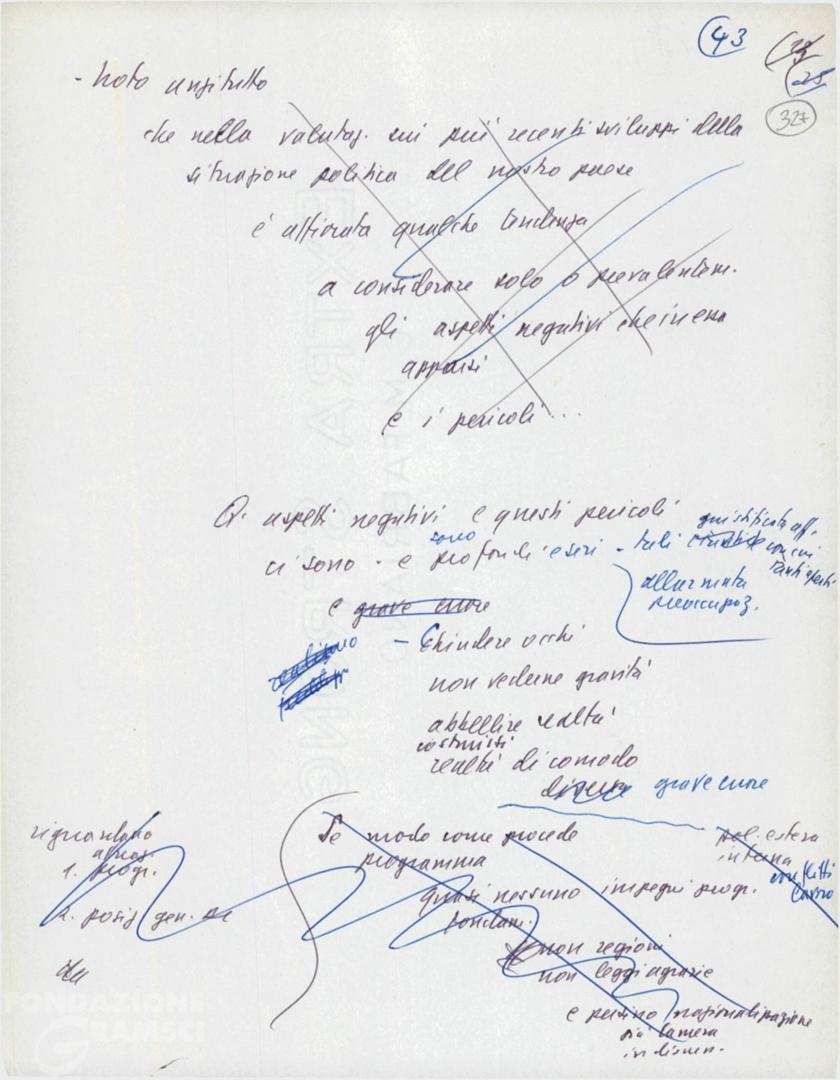 (43
(25
327
- Noto anzitutto
che nella valutaz. sui più recenti sviluppi della
situazione politica del nostro paese
è affiorata qualche tendenza
a considerare solo o prevalentem.
gli aspetti negativi che in essa
apparsi
e i pericoli...
Q. aspetti negativi e questi pericoli
ci sono - e sono profondi e seri - tali
giustificata
con cui
allarmata
preoccupaz.
e grave errore
- Chiudere occhi
non vederne gravità
abbellire realtà
costruirsi
realtà di comodo
grave errore
riguardano
1. progr.
2. posiz. gen.
Se modo come procede
programma
quasi nessuno impegni progr.
fondam.
non regioni
non leggi agrarie
e persino nazionalizzazione
più Camera
in discus.
pol. estera
interna
conflitti
lavoro
FONDAZIONE
GRAMSCI
EXTRA STRONG